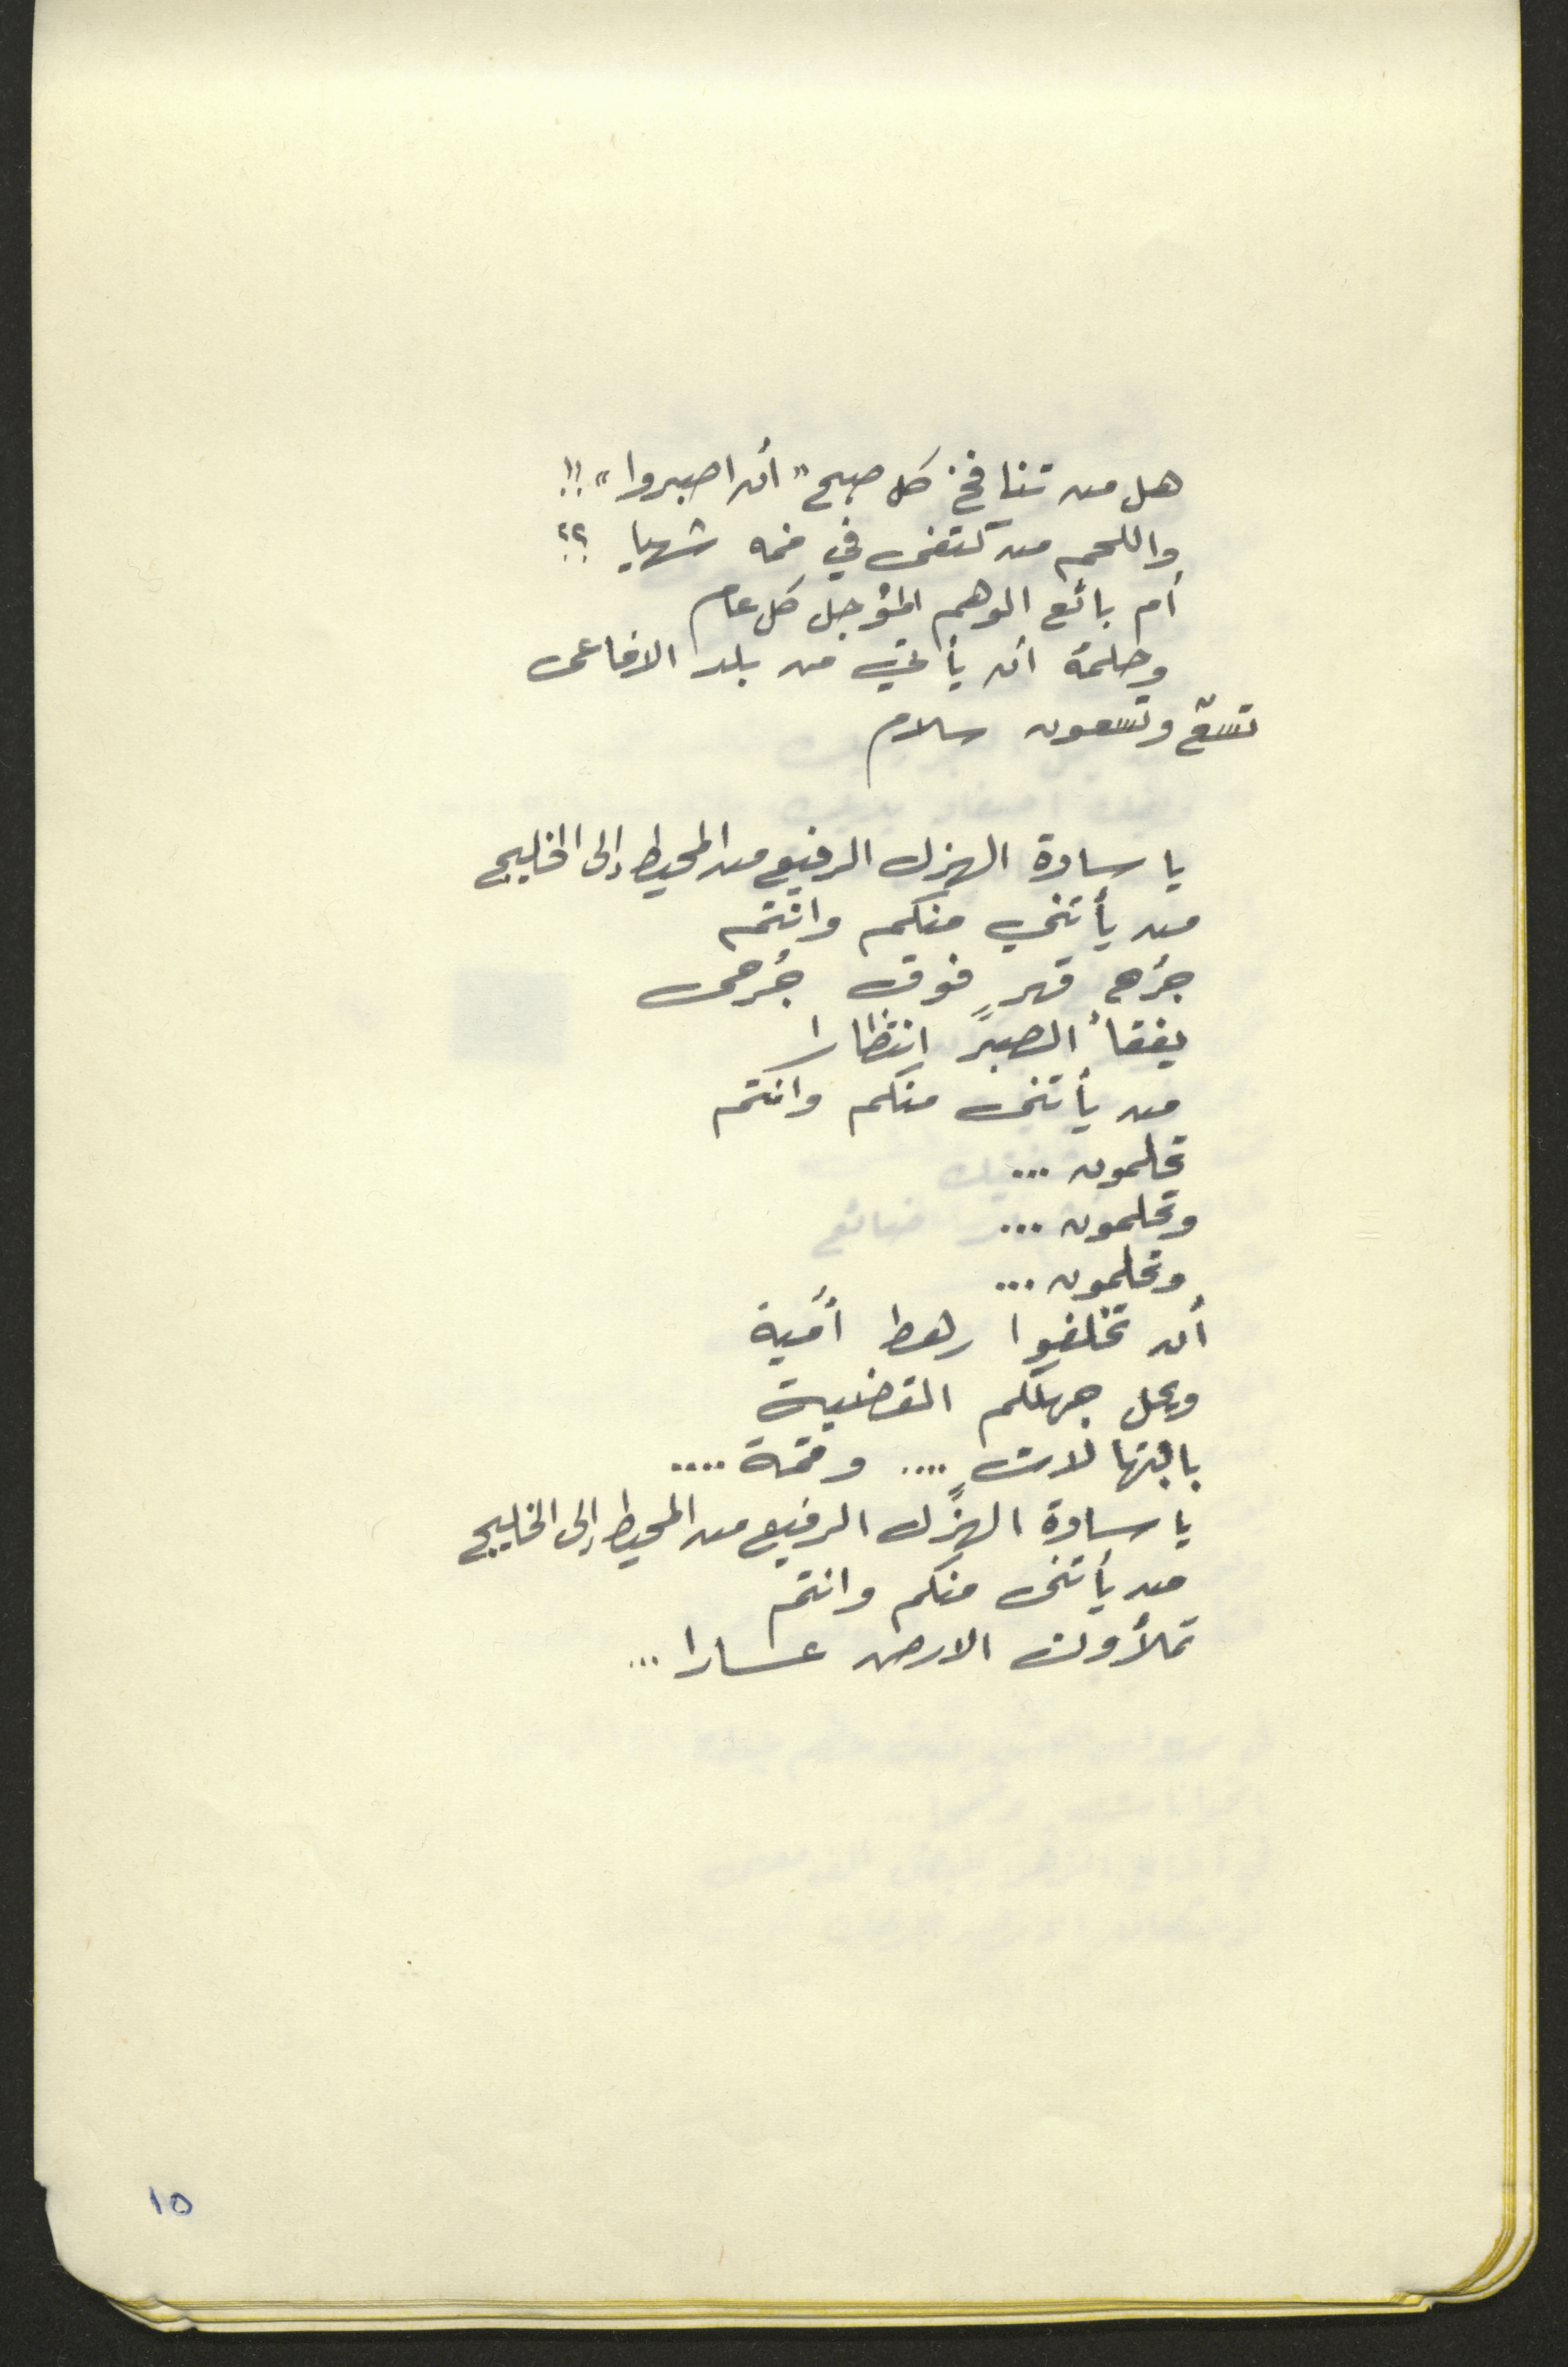 هل من تنافخ كل صبح "أن اصبروا"!!
واللحم من كتفى في فمه شهيا ؟؟
أم بائع الوهم المؤجل كل عام
وحلمة ان يأتي من بلد الافاعى
تسعٌ وتسعون سلام
يا سادة الهزل الرفيع من المحيط إلى الخليج
من يأتني منكم وانتم
جُرح قهرٍ فوق جُرحى
يفقأُ الصبرَ انتظارا
من يأتنى منكم وانتم
تحلمون ...
وتحلمون ...
وتحلمون ...
أن تخلفوا رهط أمية
وبحل جهلكم القضية
بابتهالاتٍ .... وقمة ....
يا سادة الهزل الرفيع من المحيط إلى الخليج
من يأتنى منكم وانتم
تملأون الارض عسارا ...
١٥